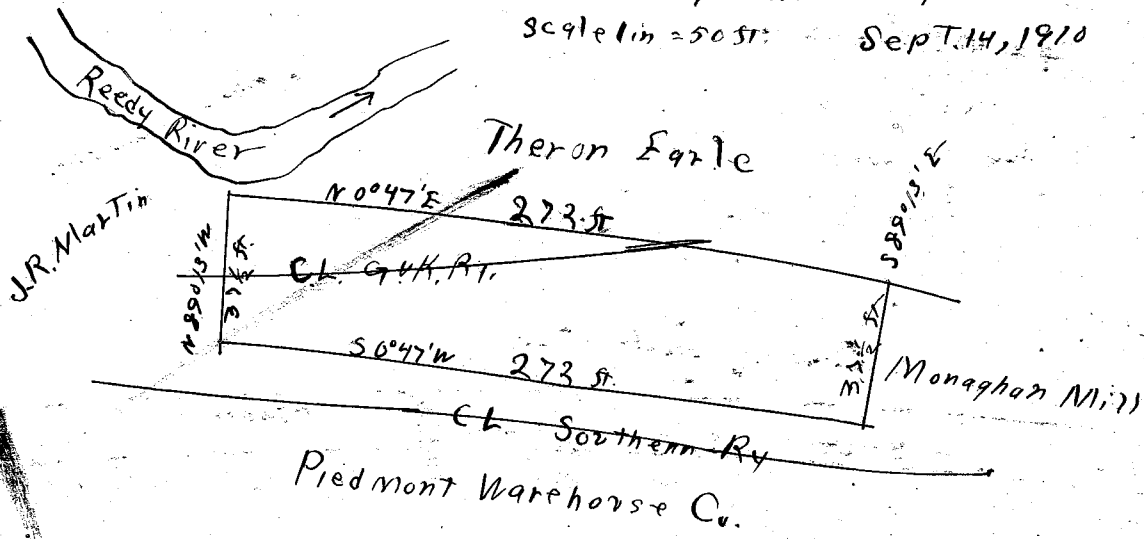 scale 1in = 50 ft. Sept. 14, 1910
Reedy River
Theron Earle
J.R. Martin
N 0°47'E 272 ft
S 89°13'E
N 89°13'W
37 1/2 ft.
CL. G. & K. Ry.
S 0°47'W 272 ft.
ft
Monaghan Mill
CL Southern Ry
Piedmont Warehouse Co.